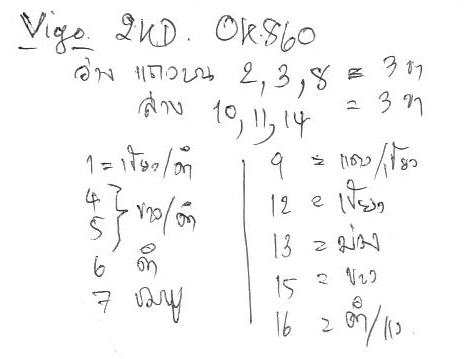 Vigo. 2KD. OK860
ว่าง แถวบน 2, 3, 8 = 3 ขา
ล่าง 10, 11, 14 = 3 ขา
1 = เขียว/ดำ
4
5 } ขาว/ดำ
6 ดำ
7 ชมพู
9 = แดง/เขียว
12 = เขียว
13 = ม่วง
15 = ขาว
16 = ดำ/แดง